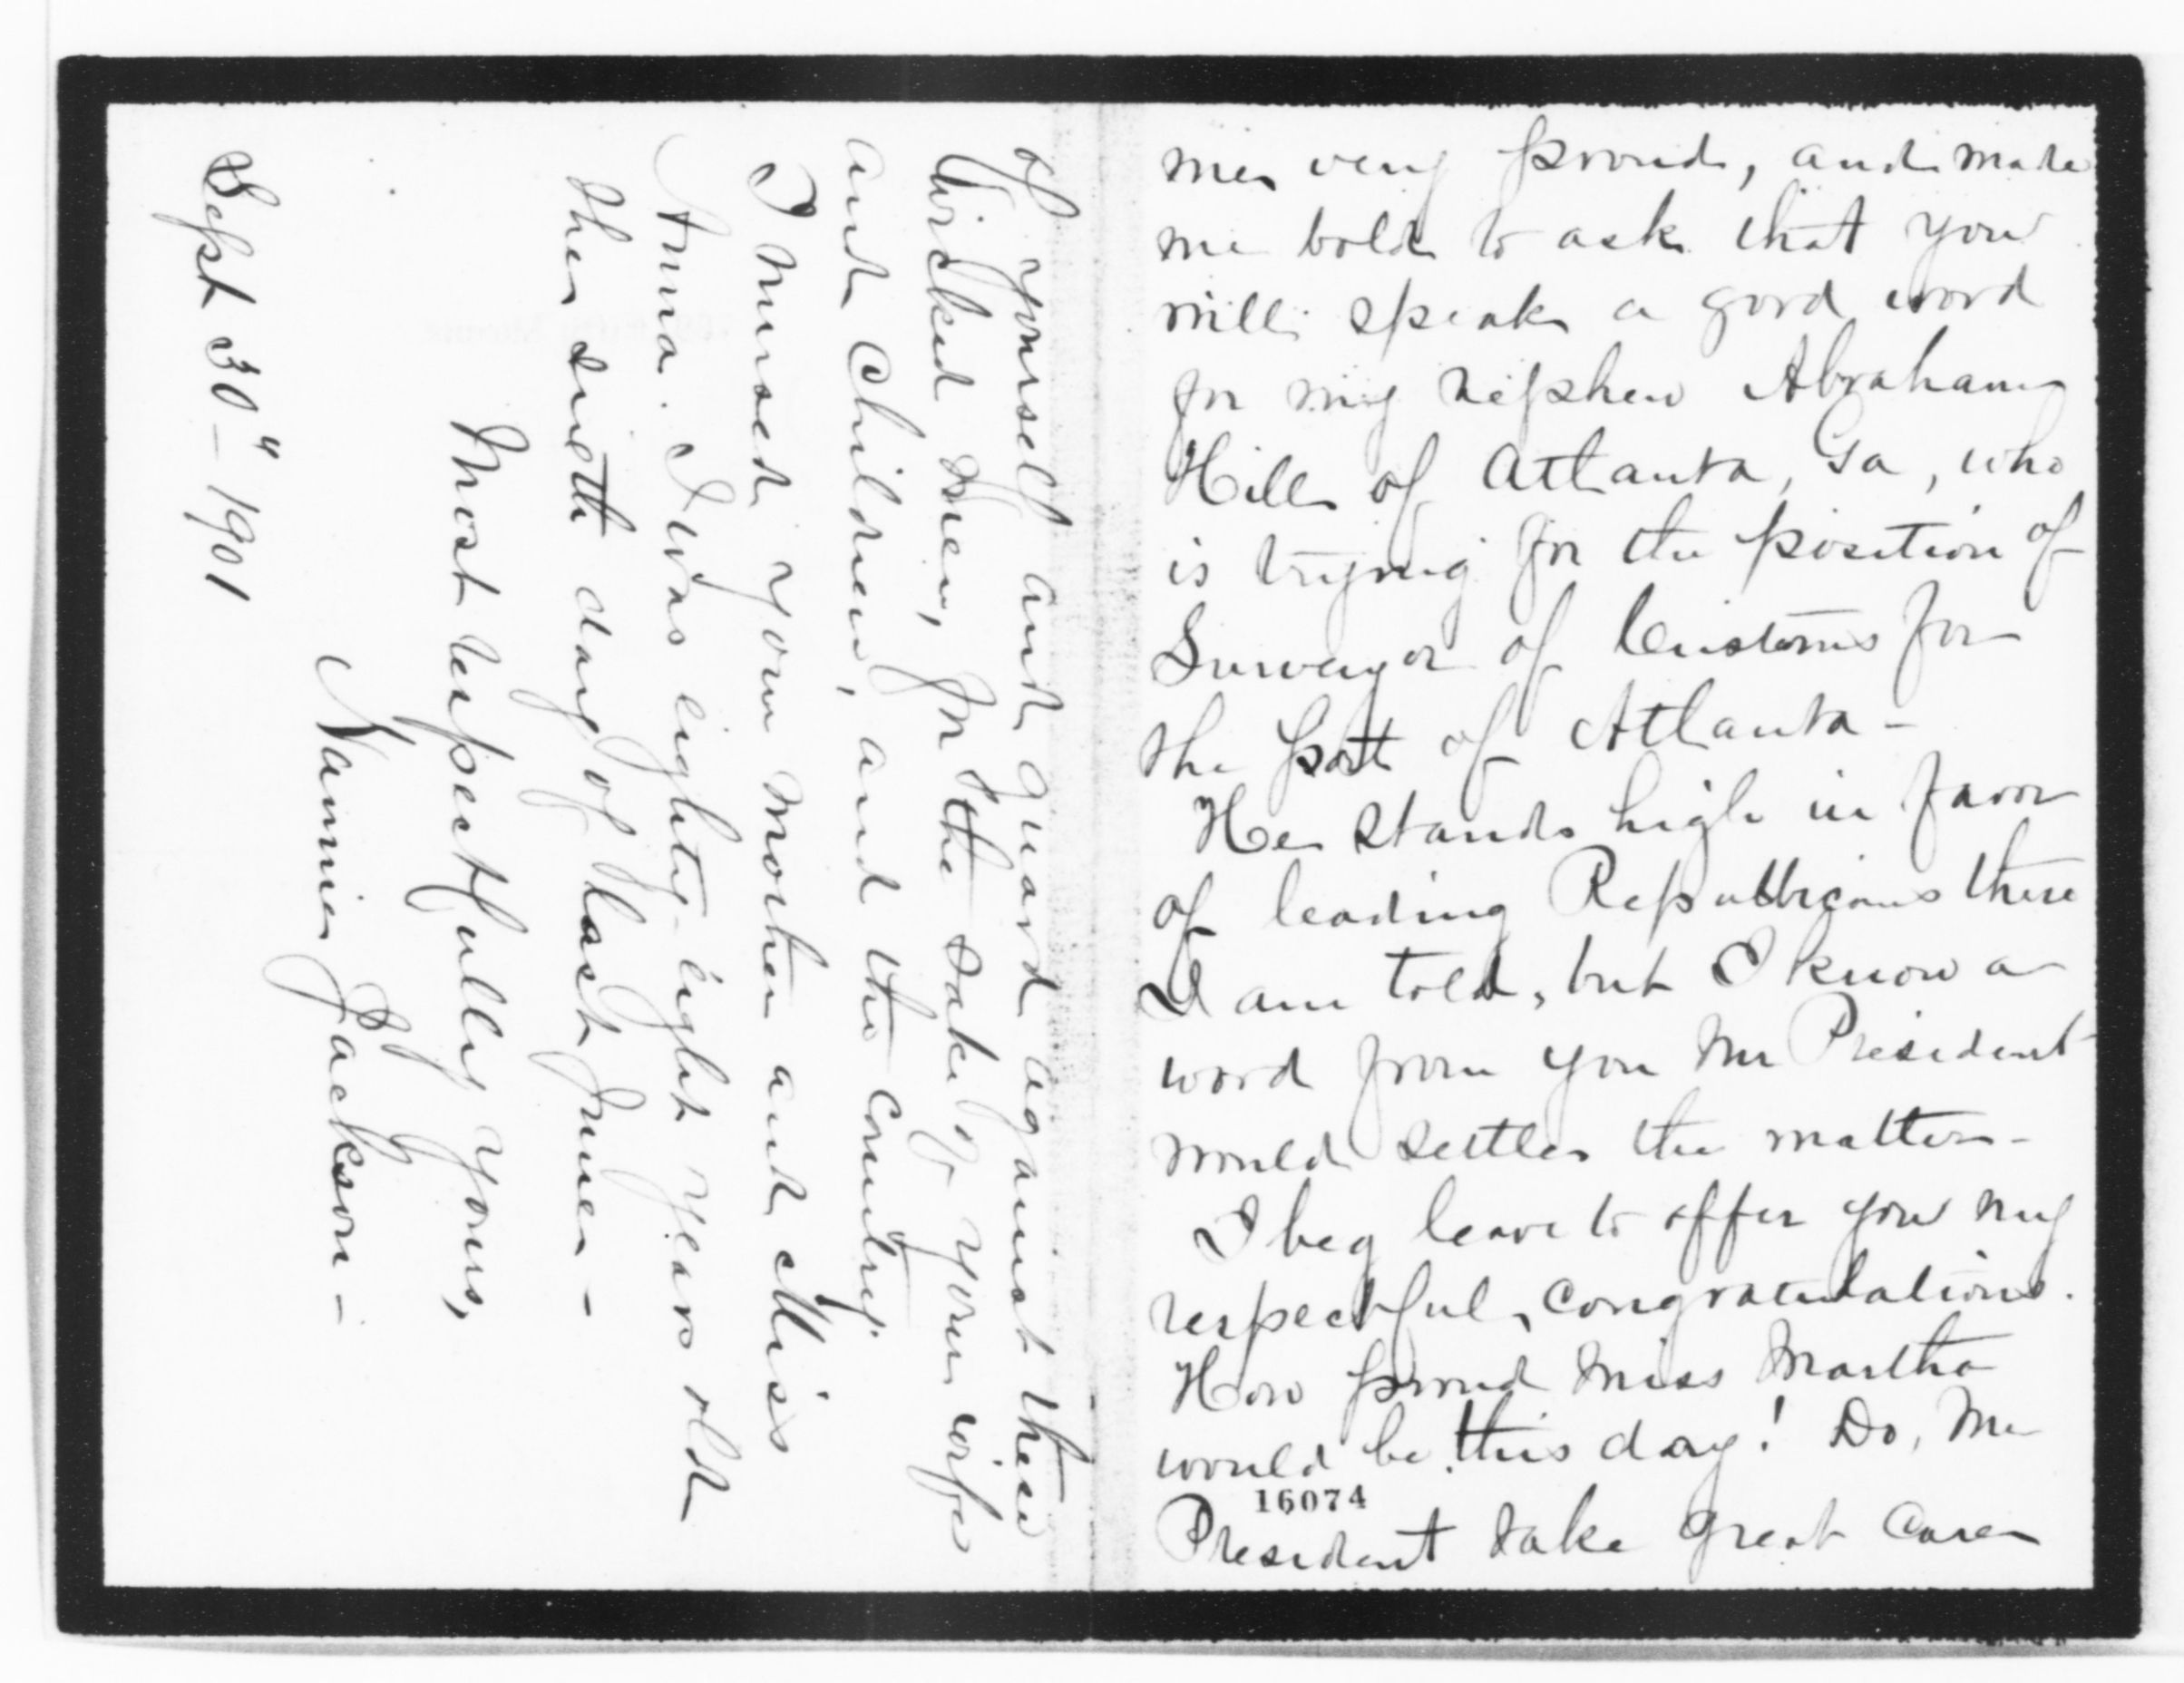 me very proud, and made
me bold to ask that you
will speak a good word
for my nephew Abraham
Hill of Atlanta, Ga, who
is trying for the position of
Surveyor of Customs for
the port of Atlanta -
He stands high in favor
of leading Republicans there
I am told, but I know a
word from you Mr President
would settle the matter -
I beg leave to offer you my
respectful congratulations.
How proud Miss Martha
would be this day! Do, Mr
16074
President take great care
of yourself and guard against these
wicked men, for the sake of your wife
and children, and the country.
I nursed your mother and Miss
Anna. I was eighty-eight years old
the sixth day of last June -
Most respectfully yours,
Nannie Jackson -
Sept 30" - 1901